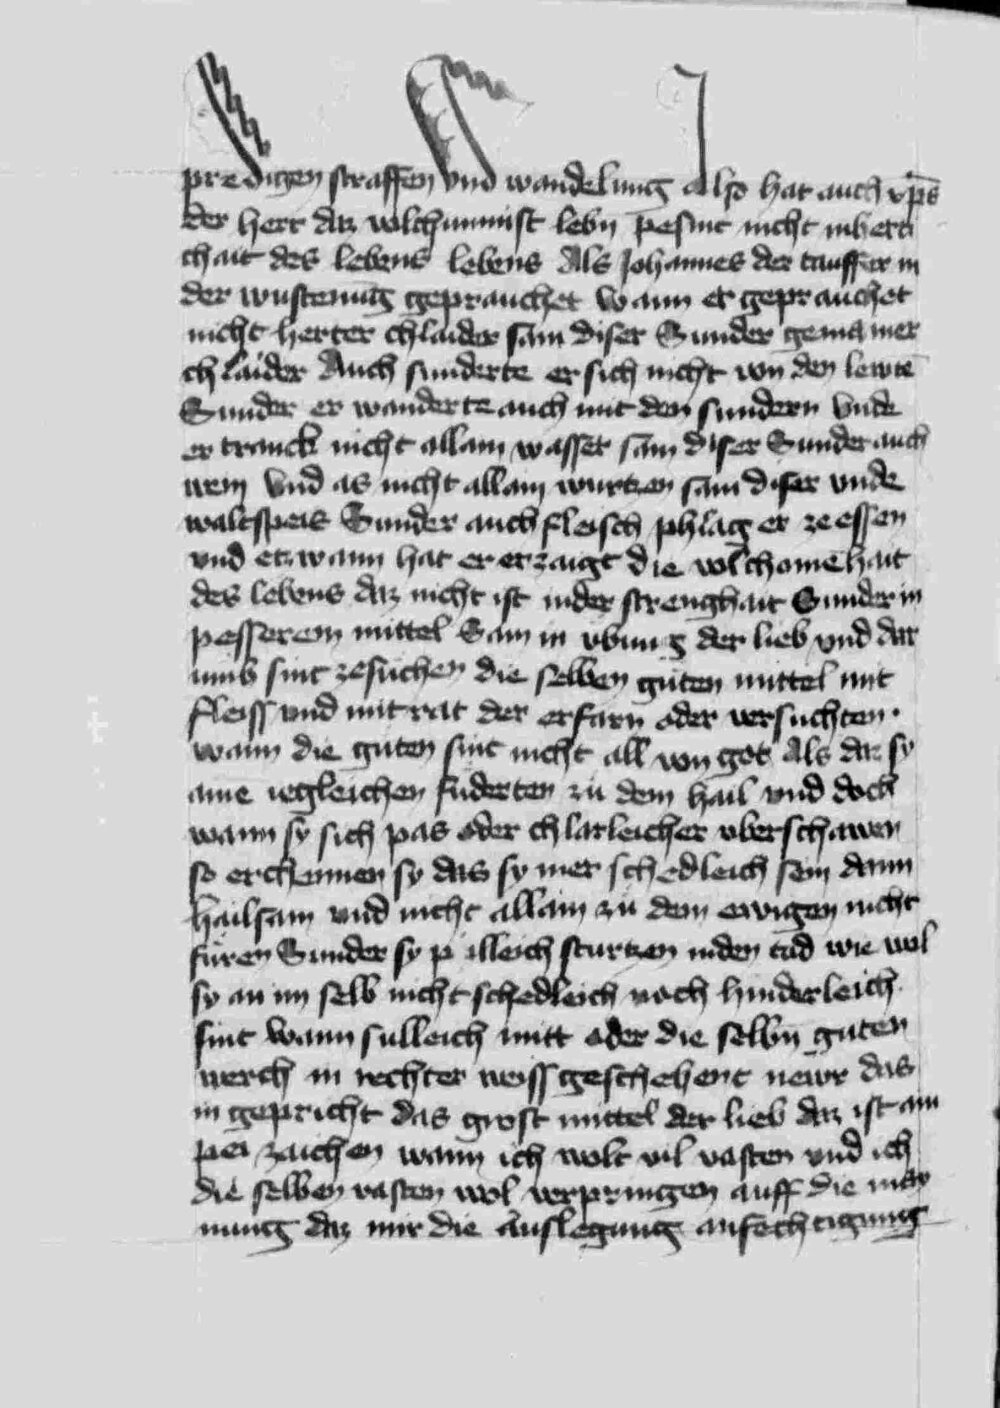 predigen straffen vnd wandelung also hat auch xp̄s
der herr daz volchumnist lebn̄ pesint nicht inherti
chait des lebens lebens Als Johannes der tauffer in
der wustenūg geprauchet wann er geprauchet
nicht herter chlaider sam diser Sunder gemainer
chlaider Auch sunderte er sich nicht von den lewtē
Sunder er wanderte auch mit den sundern vnde
er tranck nicht allain wasser sam diser Sunder auch
wein vnd as nicht allain wurtzen sam diser vnde
waltspeis Sunder auch fleisch phlag er ze essen
vnd etzwann hat er erzaigt die volchomēhait
des lebens daz nicht ist inder strenghait Sunder in
pesserem mittel Sam in vbung der lieb vnd dar
umb sint zesuchen die selben guten mittel mit
fleiss vnd mit rat der erfarn oder versuchten
wann die guten sint nicht all von got Als daz sy
ainē iegleichen fuderten zu dem hail vnd doch
wann sy sich pas oder chlarleicher vberschawen
so erchennen sy das sy mer schedleich sein dann
hailsam vnd nicht allain zu dem ewigen nicht
füren Sunder sy pilleich sturtzen inden tod wie wol
sy an im selb nicht schedleich noch hinderleich
sint wann sulleich mitt oder die selbn̄ guten
werch in rechter weiss geschehent newr das
in gepricht das grost mittel der lieb daz ist ain
pei zaichen wann ich wolt vil vasten vnd ich
die selben vasten wol verpringen auff die may
nung daz mir die Auslegung anfechtigung